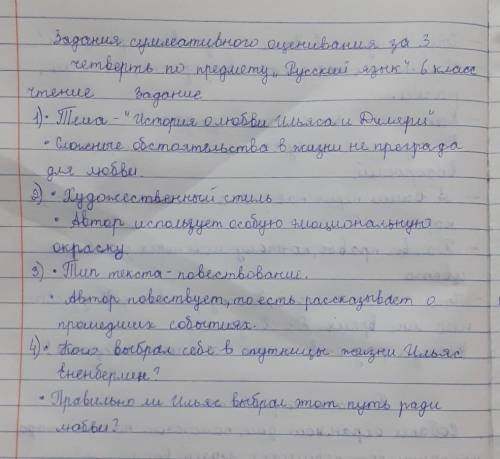 Задания суммативного оценивания за 3
четверть по предмету „Русский язык" 6 класс
чтение Задание
1) • Тема - "История о любви Ильяса и Диляры"
• Сложные обстоятельства в жизни не преграда
для любви.
2) • Художественный стиль
• Автор использует особую эмоциональную
окраску
3) • Тип текста - повествование.
• Автор повествует, то есть рассказывает о
прошедших событиях.
4) • Кого выбрал себе в спутницы жизни Ильяс
Есенберлин?
• Правильно ли Ильяс выбрал этот путь ради
любви?